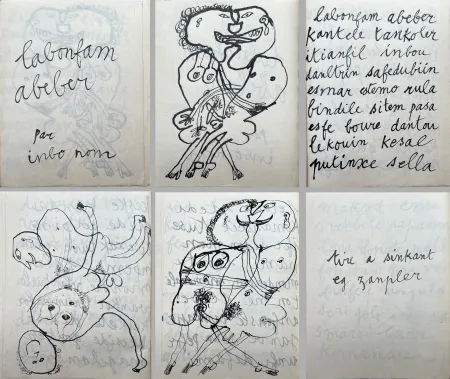 labonfam
abeber
par
inbo nom
labonfam abeber
kantele tankoler
itianfil inbou
danltrin safedubiin
esmar estemo rula
bindile sitem pasa
esfe boure dantou
lekouin kesal
putinxe sella
tire a sinkant
eg zanpler